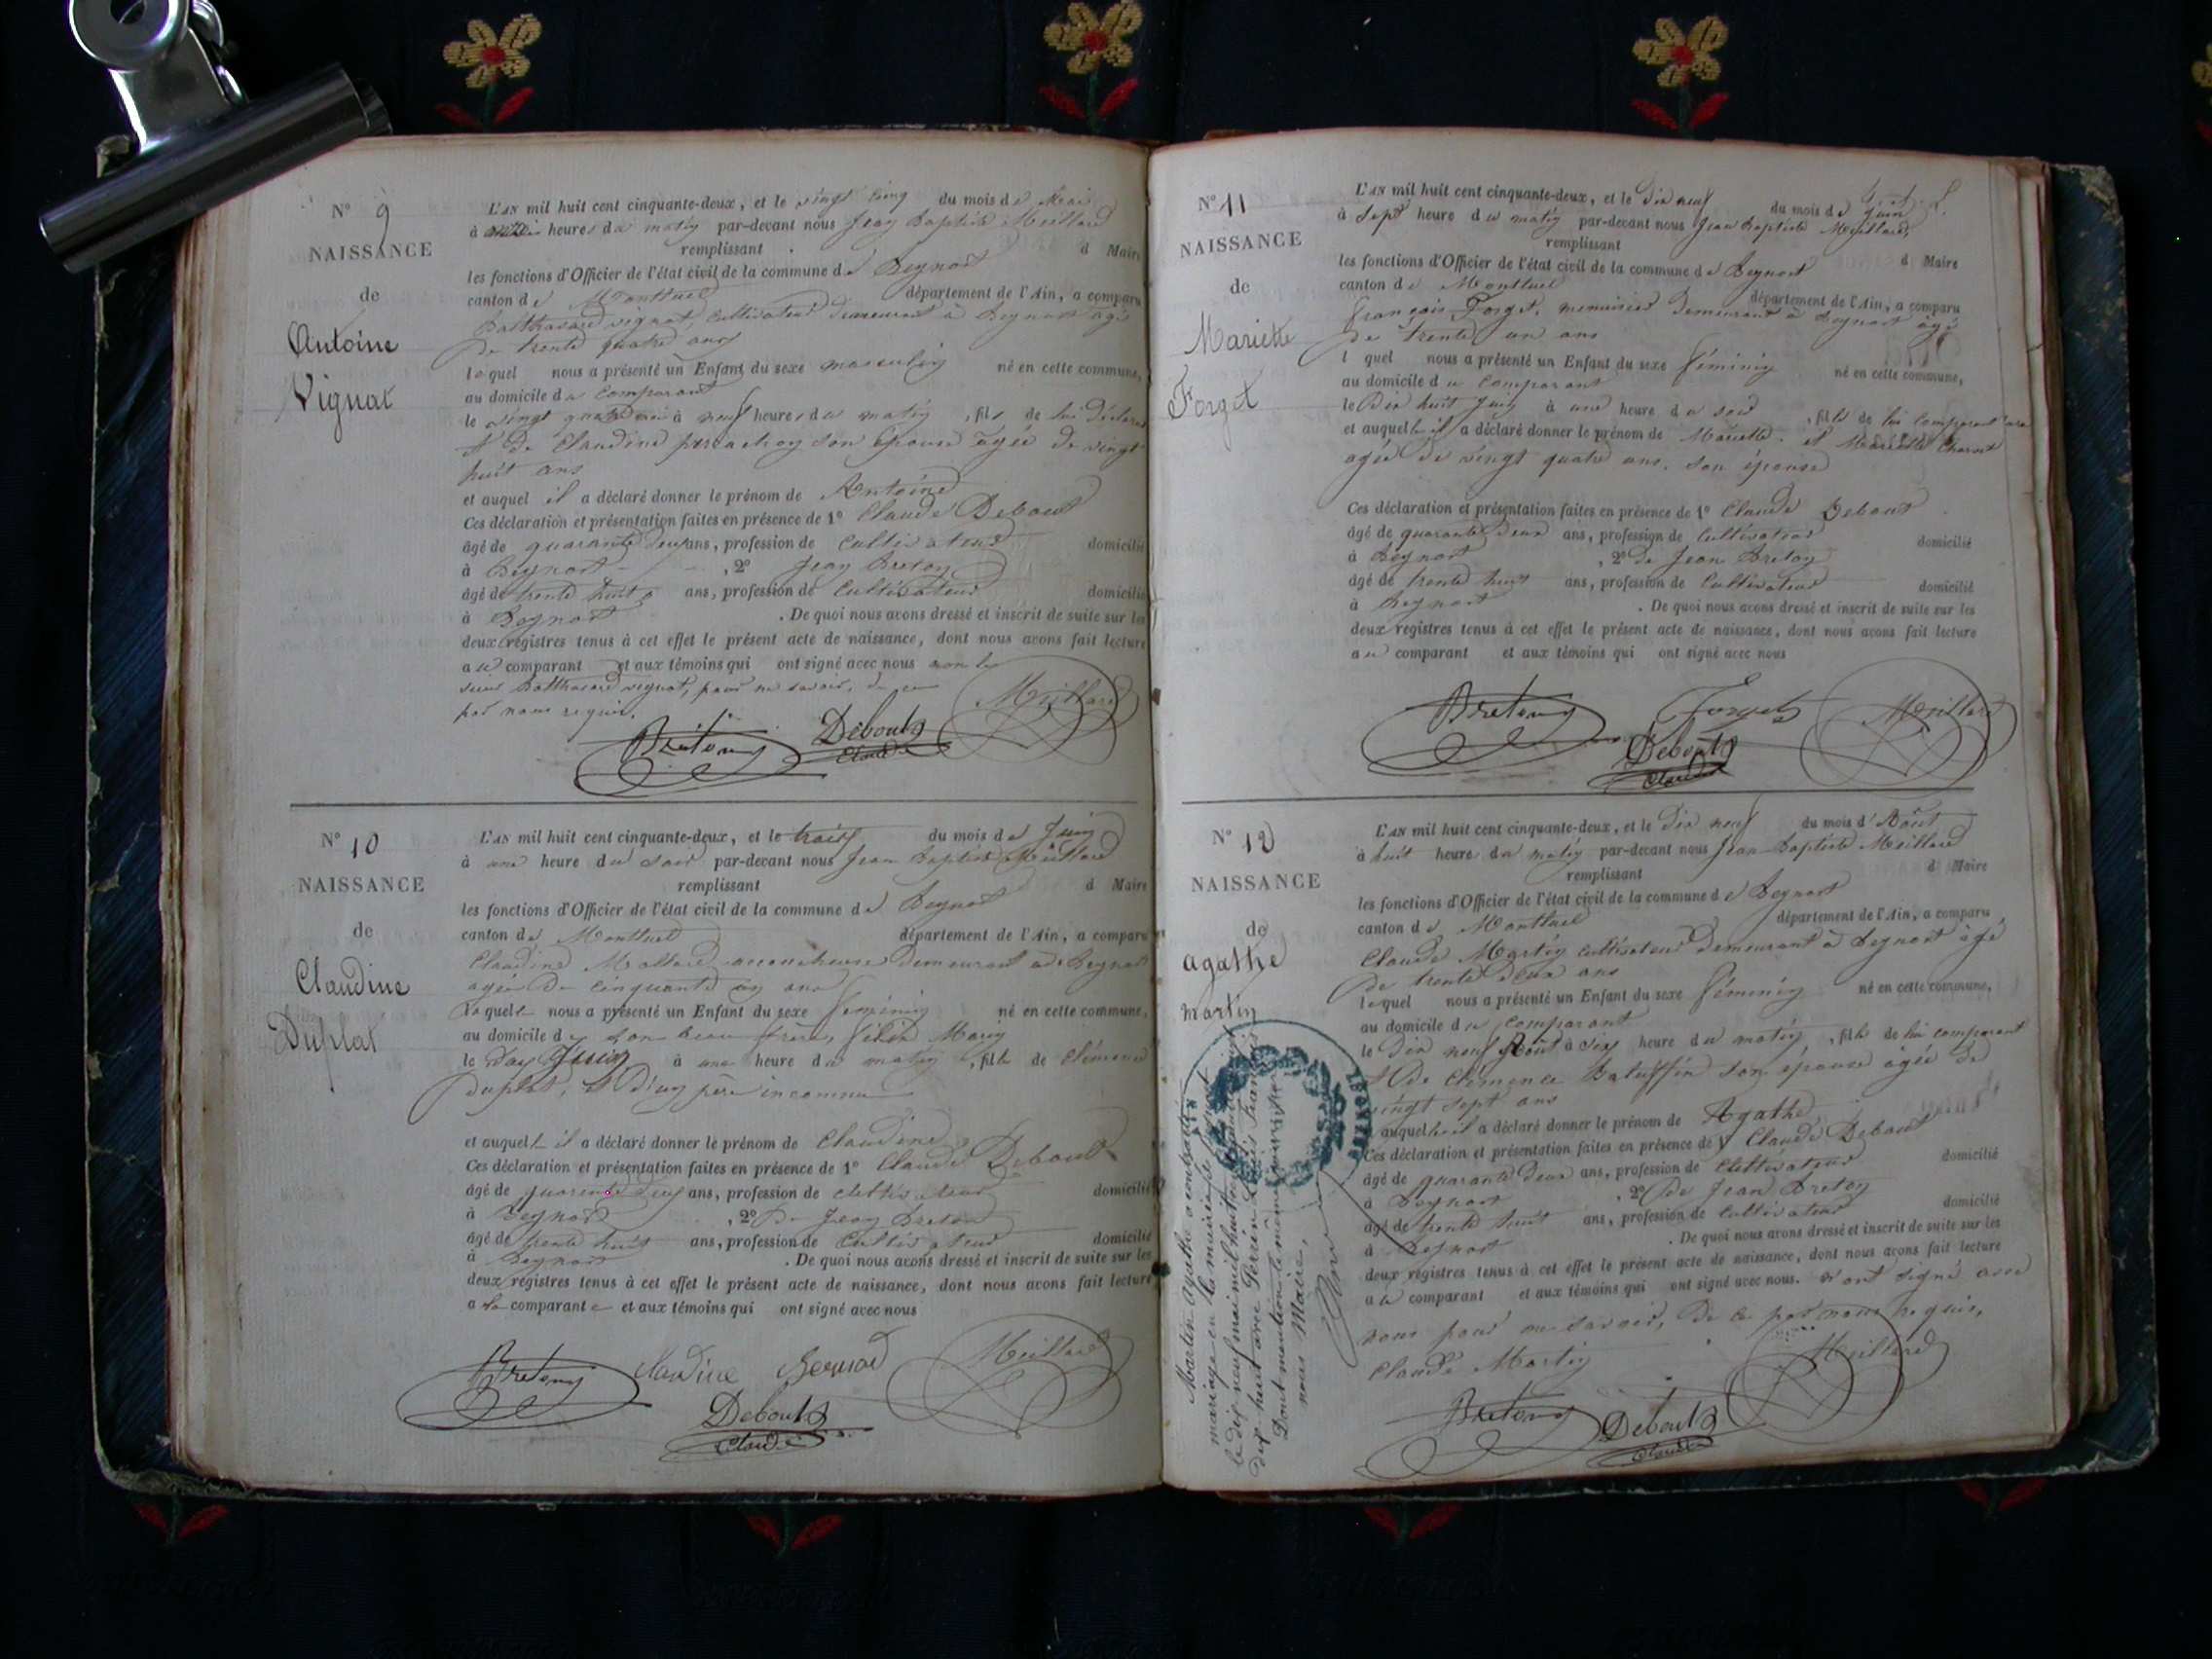 N° 9
NAISSANCE
de
Antoine
Vignat
L'AN mil huit cent cinquante-deux, et le vingt cinq du mois de Mai
à heures du matin par-devant nous Jean Baptiste Meillard
remplissant d Maire
les fonctions d'Officier de l'état civil de la commune de Beynost
canton de Montluel département de l'Ain, a comparu
Balthasard vignat, cultivateur demeurant à Beynost agé
de trente quatre ans
lequel nous a présenté un Enfant du sexe masculin né en cette commune,
au domicile du comparant
le vingt quatre mai à neuf heures du matin, fils de lui déclarant
et de Claudine son épouse agée de vingt
huit ans
et auquel il a déclaré donner le prénom de Antoine
Ces déclaration et présentation faites en présence de 1° Claude Debout
âgé de quarante deux ans, profession de cultivateur domicilié
à Beynost, 2° Jean Breton
âgé de trente huit ans, profession de cultivateur domicilié
à Beynost. De quoi nous avons dressé et inscrit de suite sur les
deux registres tenus à cet effet le présent acte de naissance, dont nous avons fait lecture
au comparant et aux témoins qui ont signé avec nous non le
sieur Balthasard vignat, pour ne savoir, de ce
par nous requis.
Meillard
Breton Debout
Claude
N° 10
NAISSANCE
de
Claudine
Duplat
L'AN mil huit cent cinquante-deux, et le trois du mois de Juin
à une heure du soir par-devant nous Jean Baptiste Meillard
remplissant d Maire
les fonctions d'Officier de l'état civil de la commune de Beynost
canton de Montluel département de l'Ain, a comparu
Claudine accoucheuse demeurant à Beynost
agée de cinquante ans
laquelle nous a présenté un Enfant du sexe féminin né en cette commune,
au domicile de son beau frère,
le Juin à une heure du matin, fille de Clémence
Duplat, et d'un père inconnu
et auquel il a déclaré donner le prénom de Claudine
Ces déclaration et présentation faites en présence de 1° Claude Debout
âgé de quarante deux ans, profession de cultivateur domicilié
à Beynost, 2° de Jean Breton
âgé de trente huit ans, profession de cultivateur domicilié
à Beynost. De quoi nous avons dressé et inscrit de suite sur les
deux registres tenus à cet effet le présent acte de naissance, dont nous avons fait lecture
a la comparante et aux témoins qui ont signé avec nous
Breton Claudine Meillard
Debout
Claude
N° 11
NAISSANCE
de
Mariette
Forget
L'AN mil huit cent cinquante-deux, et le dix neuf du mois de Juin
à sept heure du matin par-devant nous Jean Baptiste Meillard,
remplissant d Maire
les fonctions d'Officier de l'état civil de la commune de Beynost
canton de Montluel département de l'Ain, a comparu
françois Forget, menuisier demeurant à Beynost âgé
de trente un ans
l quel nous a présenté un Enfant du sexe féminin né en cette commune,
au domicile du comparant
le dix huit Juin à une heure du soir, fille de lui comparant
et auquel il a déclaré donner le prénom de Mariette. et Mariette
agée de vingt quatre ans, son épouse
Ces déclaration et présentation faites en présence de 1° Claude Debout
âgé de quarante deux ans, profession de cultivateur domicilié
à Beynost, 2° de Jean Breton
âgé de trente huit ans, profession de cultivateur domicilié
à Beynost. De quoi nous avons dressé et inscrit de suite sur les
deux registres tenus à cet effet le présent acte de naissance, dont nous avons fait lecture
au comparant et aux témoins qui ont signé avec nous
Breton Forget Meillard
Debout
Claude
N° 12
NAISSANCE
de
agathe
martin
L'AN mil huit cent cinquante-deux, et le dix neuf du mois d'Août
à huit heures du matin par-devant nous Jean Baptiste Meillard
remplissant d Maire
les fonctions d'Officier de l'état civil de la commune de Beynost
canton de Montluel département de l'Ain, a comparu
Claude Martin cultivateur demeurant à Beynost âgé
de trente deux ans
lequel nous a présenté un Enfant du sexe féminin né en cette commune,
au domicile du comparant
le dix neuf Août à six heure du matin, fille de lui comparant
et de Clémence son épouse âgée de
vingt sept ans
auquel il a déclaré donner le prénom de Agathe
Ces déclaration et présentation faites en présence de Claude Debout
âgé de quarante deux ans, profession de cultivateur domicilié
à Beynost, 2° de Jean Breton
âgé de trente huit ans, profession de cultivateur domicilié
à Beynost. De quoi nous avons dressé et inscrit de suite sur les
deux registres tenus à cet effet le présent acte de naissance, dont nous avons fait lecture
au comparant et aux témoins qui ont signé avec nous. avec
nous pour ne savoir, de ce par nous requis,
Claude Martin
Meillard
Breton Debout
Claude
Martin agathe a contracté
mariage en la mairie de
le dix neuf mai mil huit cent
dix huit avec Perrin Louis François
Dont mention le même jour
nous Maire,